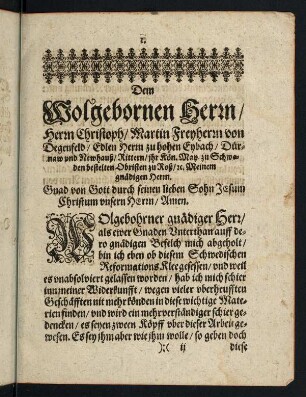 1.
Dem
Wolgebornen Herrn/
Herrn Christoph/ Martin Freyherrn von
Degenfeld/ Edlen Herrn zu hohen Eybach/ Dür-
naw und Newhauß/ Rittern/ ihr Kön. May. zu Schwe-
den bestelten Obristen zu Roß/ ꝛc. Meinem
gnädigen Herrn.
Gnad von Gott durch seinen lieben Sohn Jesum
Christum unsern Herrn/ Amen.
WOlgebohrner gnädiger Herr/
als ewer Gnaden Unterthan auff de-
ro gnädigen Befelch mich abgeholt/
bin ich eben ob diesem Schwedischen
Reformations Klee gesessen/ und weil
es unabsolviert gelassen worden/ hab ich mich schier
inn meiner Widerkunfft/ wegen vieler überheufften
Geschäfften nit mehr können in diese wichtige Mate-
rien finden/ und wird ein mehr verständiger schier ge-
dencken/ es seyen zween Köpff über dieser Arbeit ge-
wesen. Es sey ihm aber wie ihm wolle/ so geben doch
):( ij
diese